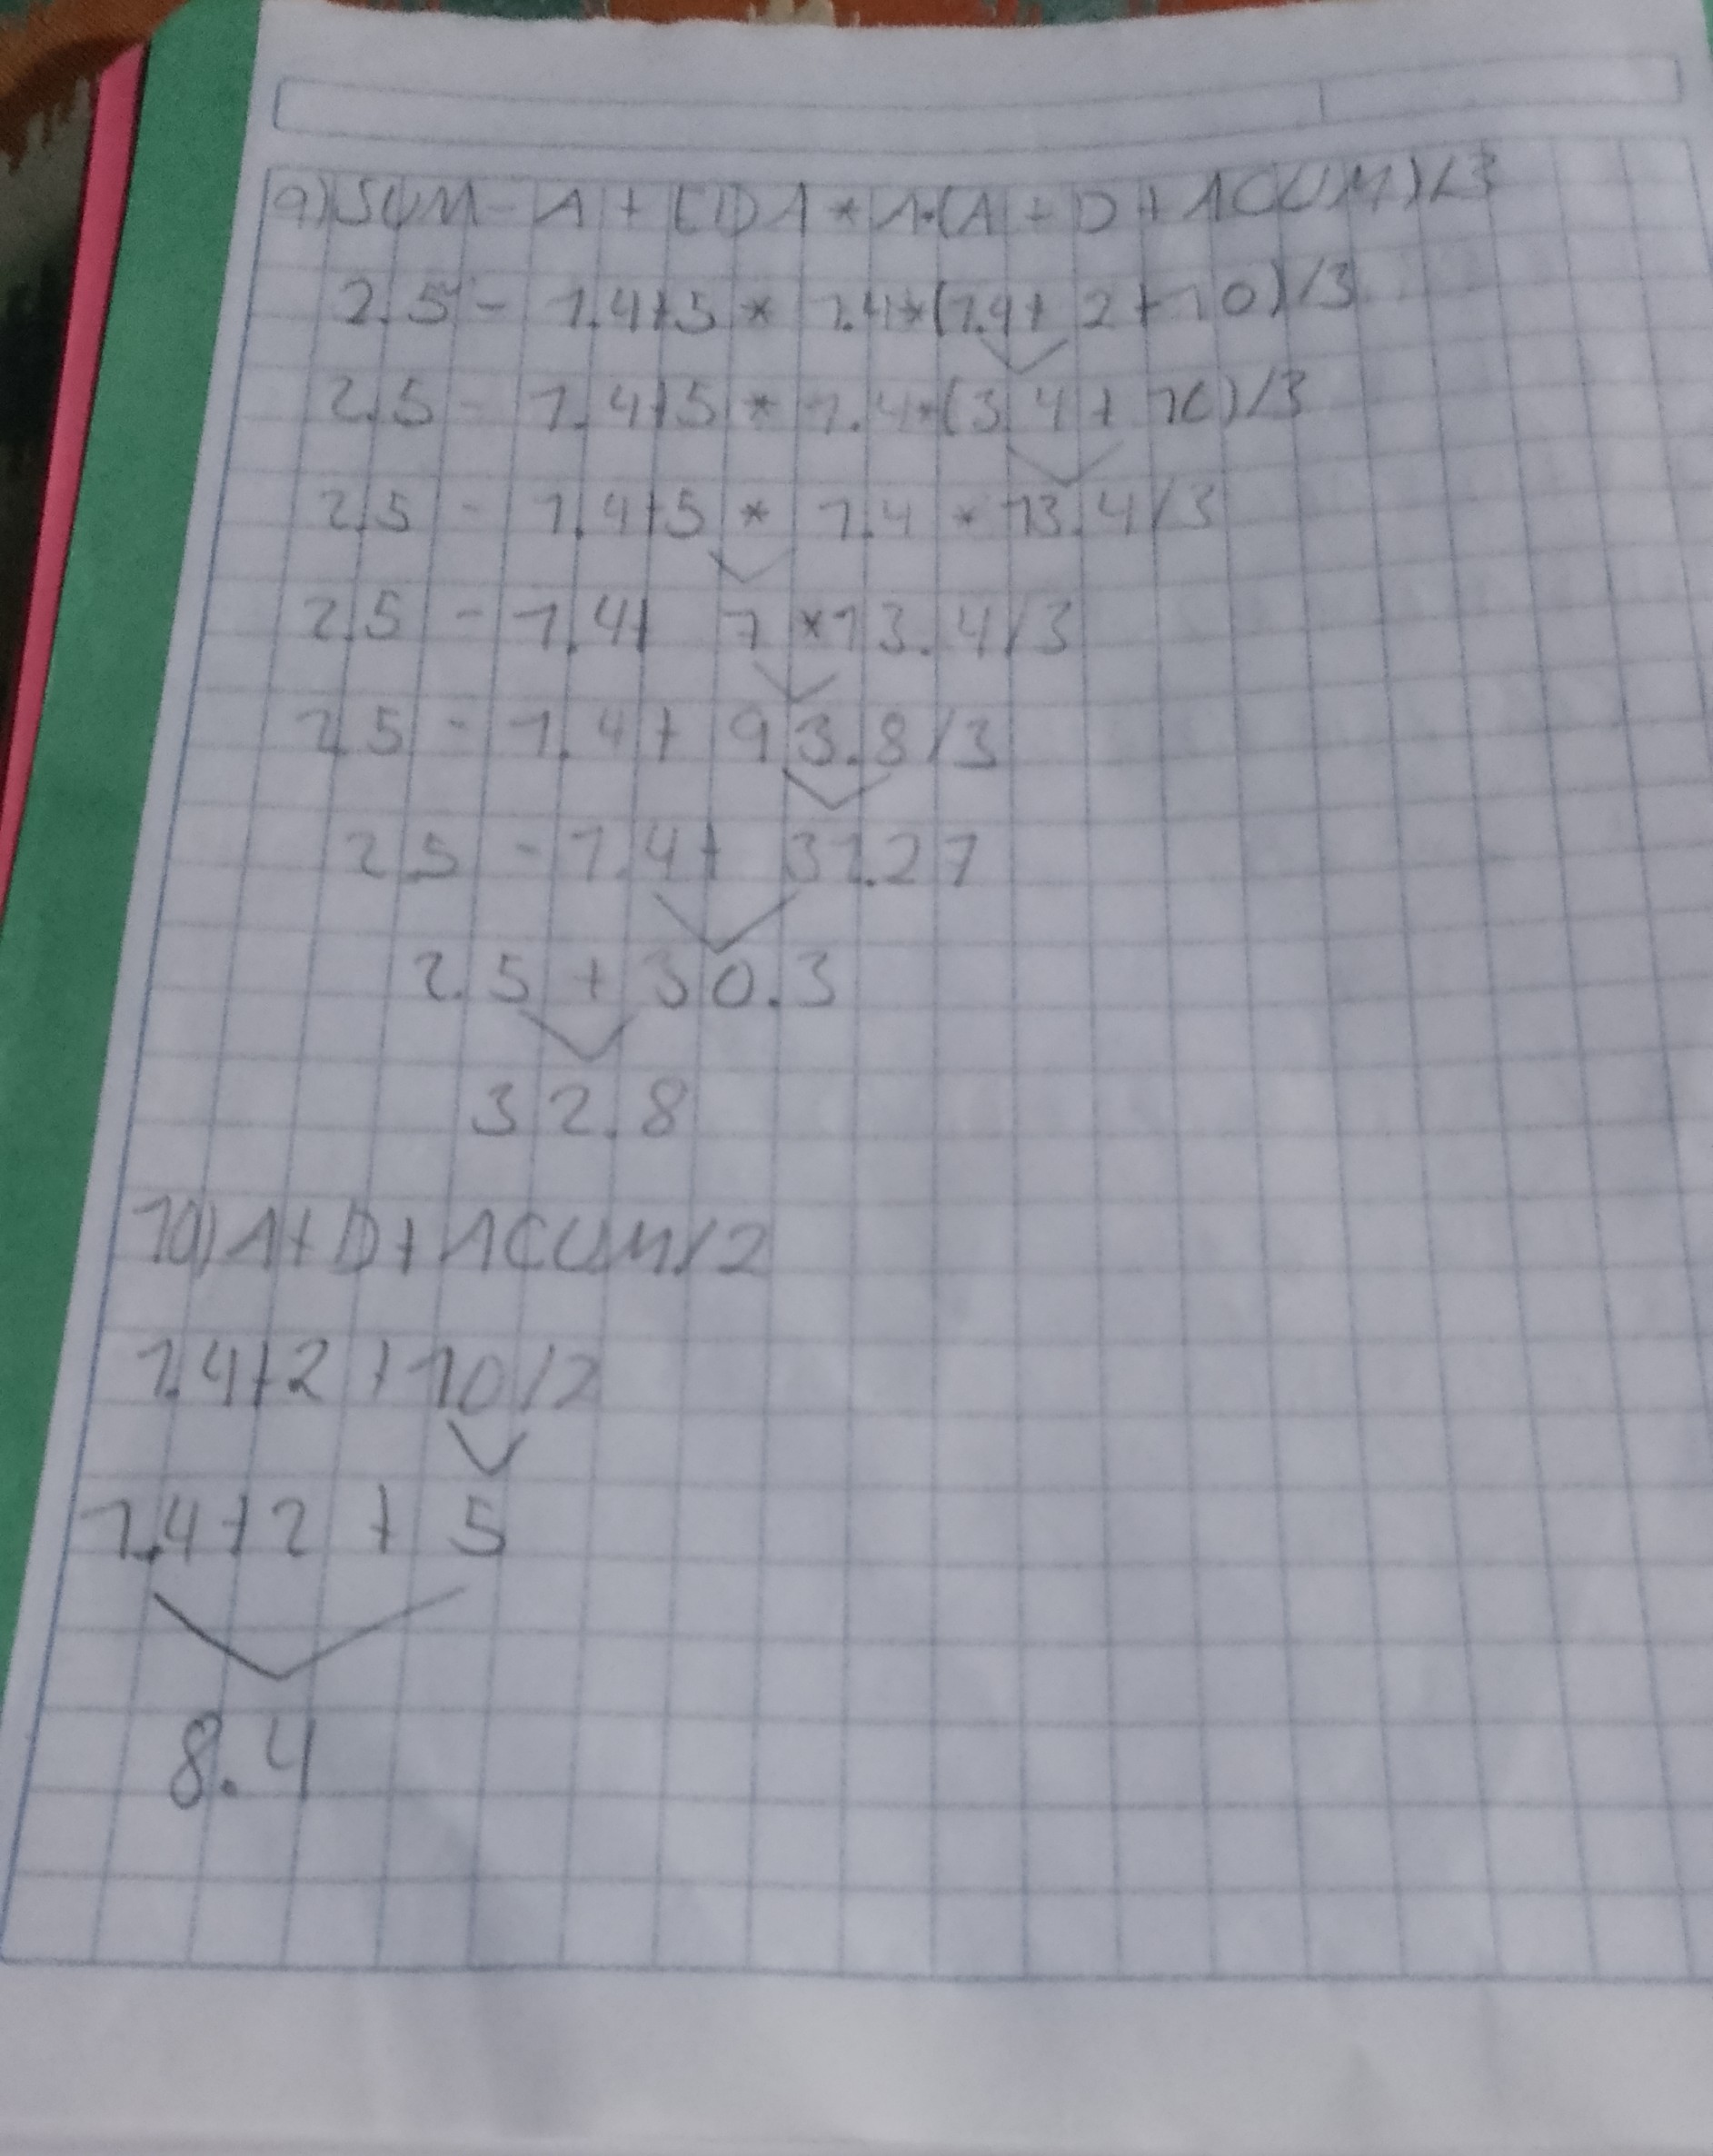 9) SUM - A + EDA * A * (A + D + ACUM) / 3
2.5 - 1.4 + 5 * 1.4 * (1.4 + 2 + 10) / 3
2.5 - 1.4 + 5 * 1.4 * (3.4 + 10) / 3
2.5 - 1.4 + 5 * 1.4 * 13.4 / 3
2.5 - 1.4 + 7 * 13.4 / 3
2.5 - 1.4 + 93.8 / 3
2.5 - 1.4 + 31.27
2.5 + 30.3
32.8
10) A + D + ACUM / 2
1.4 + 2 + 10 / 2
1.4 + 2 + 5
8.4